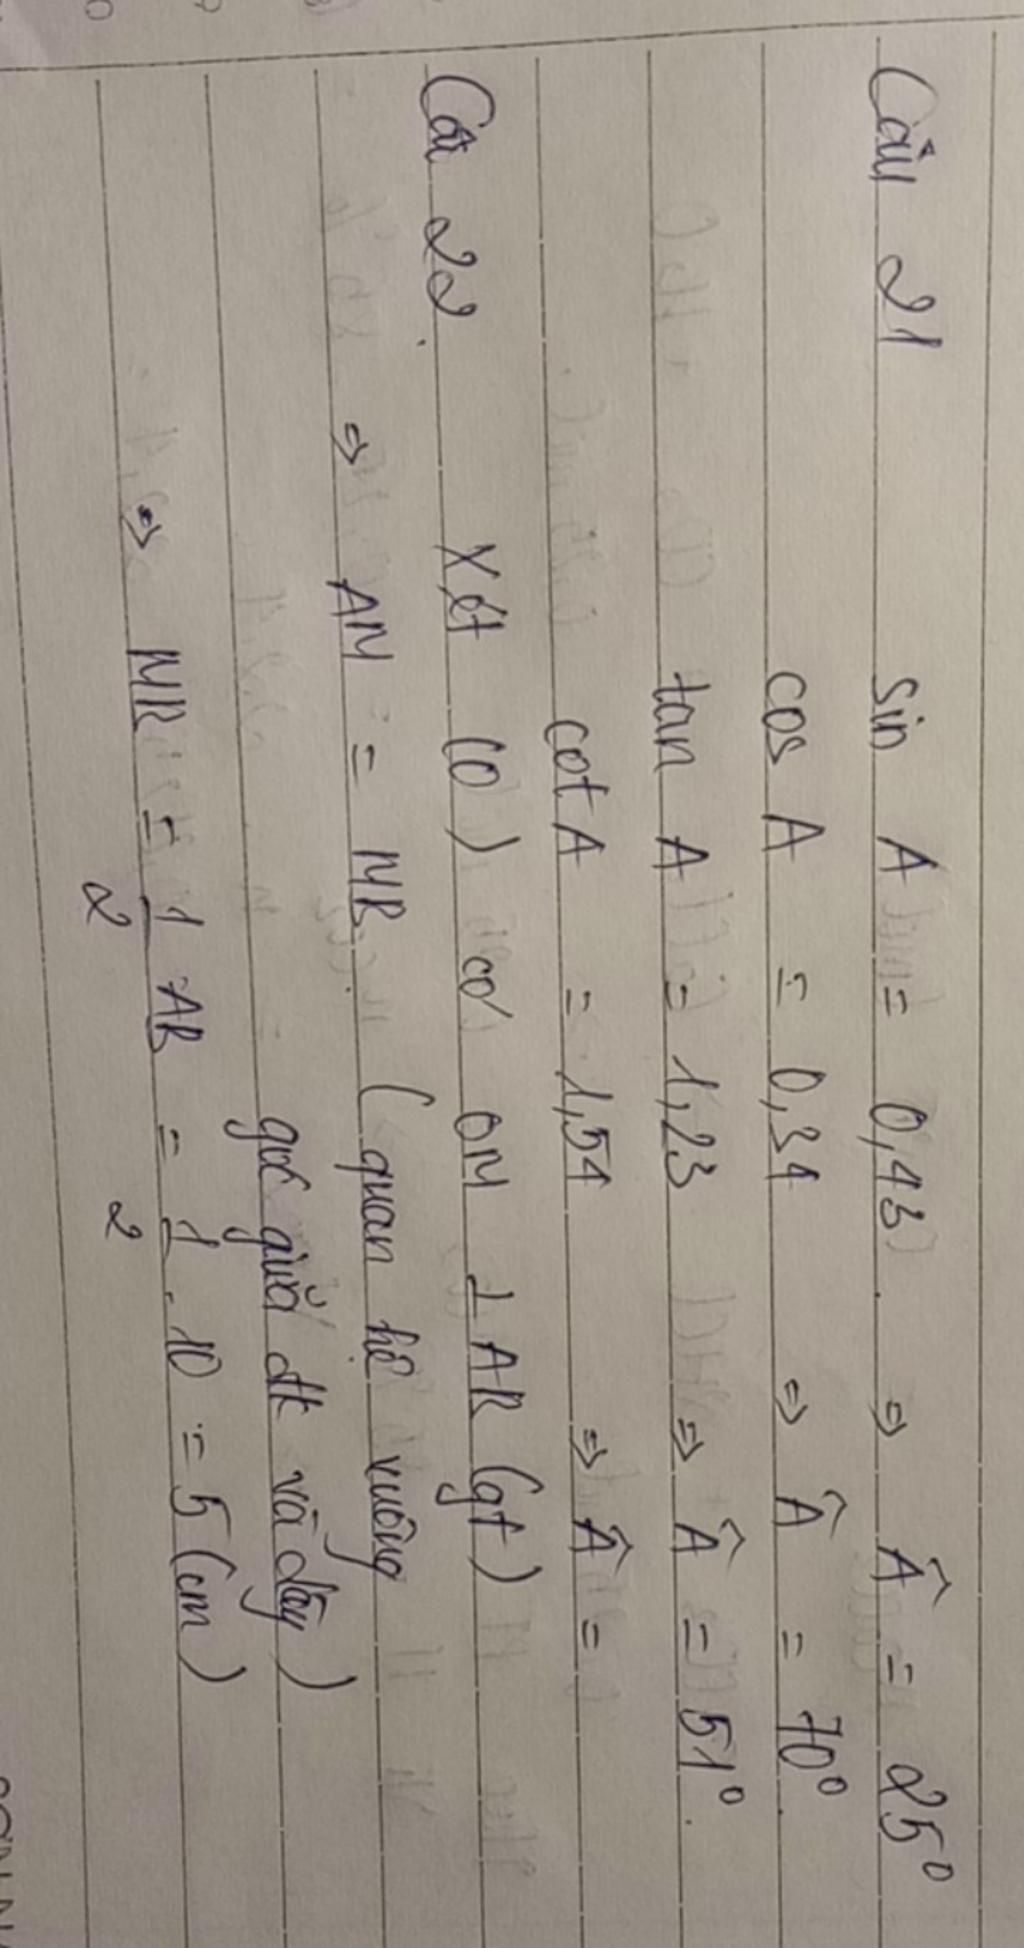 Câu 21 Sin A = 0,43 ⇒ Â = 25°
cos A = 0,34 ⇒ Â = 70°
tan A = 1,23 ⇒ Â = 51°
cot A = 1,54 ⇒ Â =
Câu 22 Xét (O) có OM ⊥ AB (gt)
⇒ AM = MB (quan hệ vuông
góc giữa đk và dây)
⇒ MB = 1/2 AB = 1/2 . 10 = 5 (cm)